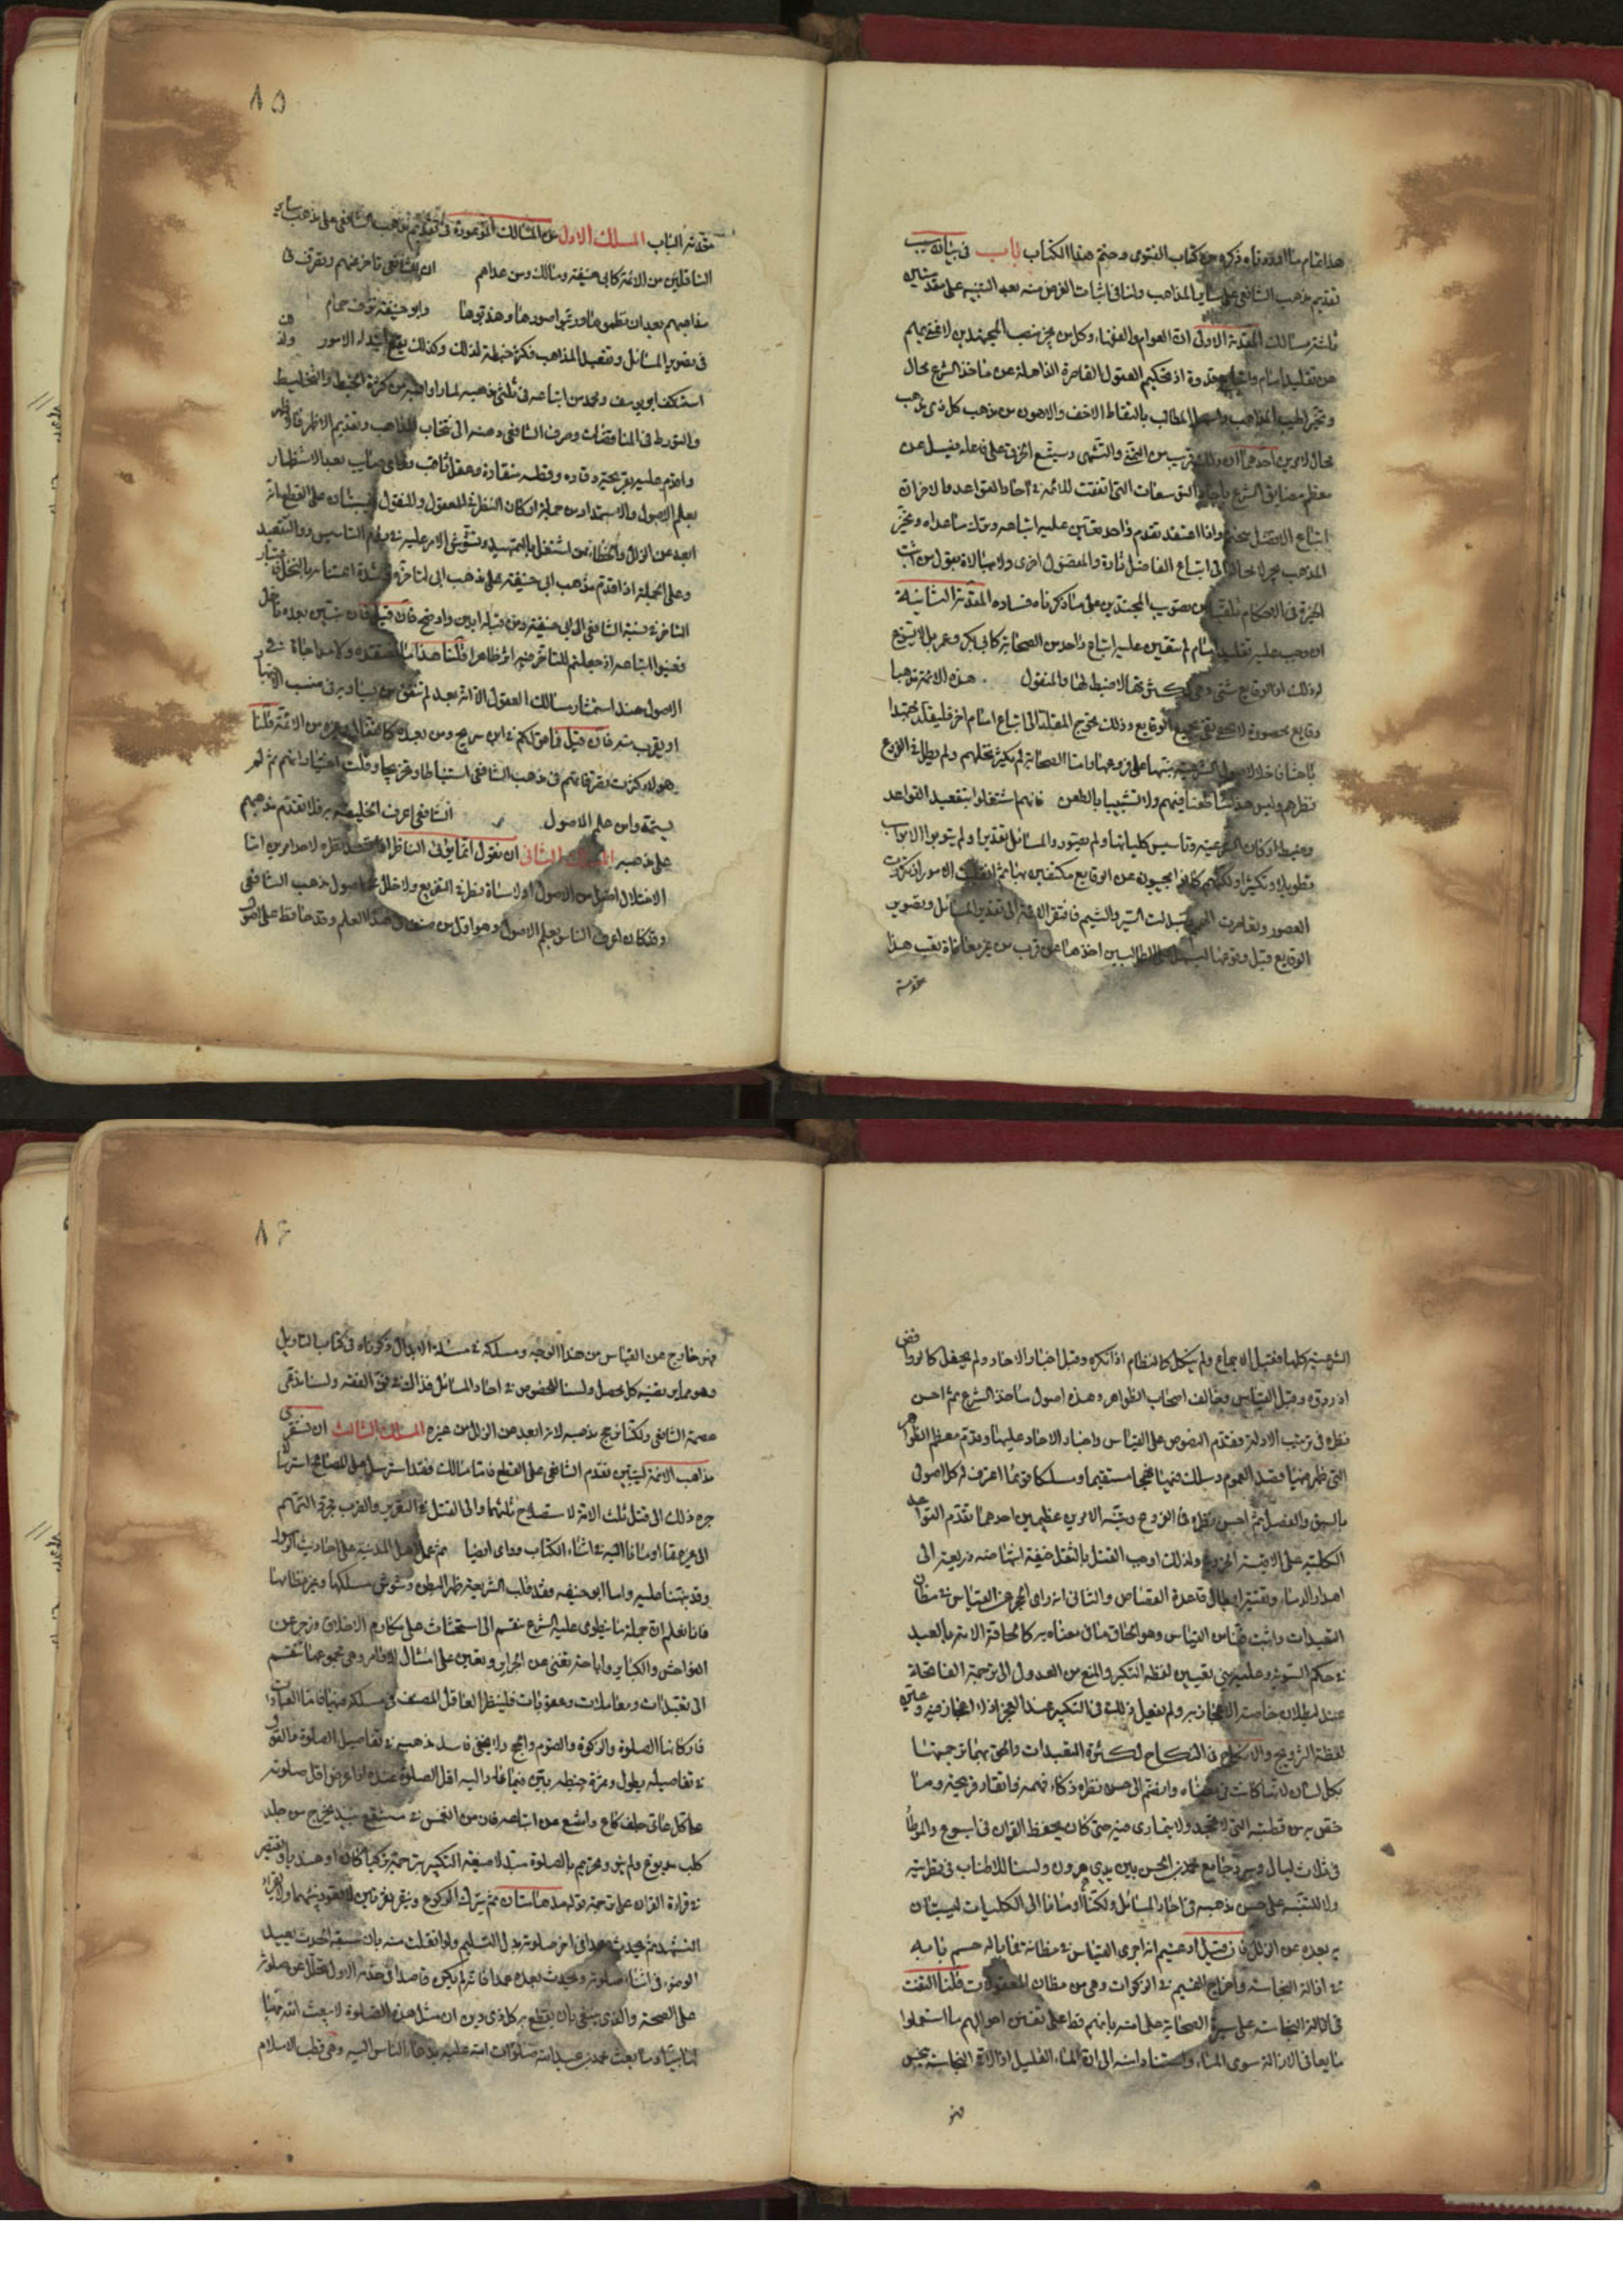 هذا تمام ما اردناه ذكره من كتاب الفتوى ونختم هذا الكتاب باب في بيان سبب
تقديم مذهب الشافعي على سائر المذاهب ولنا في اثبات الغرض منه بعد التنبيه على مقدمتين
ثلثة مسالك المقدمة الاولى ان العوام والفقهاء وكل من لم منصب المجتهدين لا غنى بهم
عن تقليد امام واتباع قدوة اذ تحكيم العقول القاصرة الذاهلة عن مآخذ الشرع محال
وتخير اطيب المذاهب واسهل المطالب بالتقاط الاخف والاهون من مذهب كل ذى مذهب
محال لامرين احدهما ان ذلك قريب من التمنى والتشهى
معظم مضايق الشرع التى اتفقت للائمة في آحاد القواعد والاخران
اتباع الافضل محتوم واذا اعتقد تقدم واحد تعين عليه اتباعه وترك ما عداه وتخير
المذاهب يجر لا محالة الى اتباع الفاضل تارة والمفضول اخرى ولا مبالاة بقول من اثبت
الخيرة في الاحكام تلقيا من تصويب المجتهدين على ما ذكرناه فساده المقدمة الثانية
ان وجب عليه تقليد امام لم يتعين عليه اتباع واحد من الصحابة كابى بكر وعمر بل لا يتسوغ
له ذلك اذ الوقايع شتى
وقايع محصورة لا تفى بجميع الوقايع وذلك يحوج المقلد الى اتباع امام اخر فليقلد مجتهدا
ولم يطل في الفروع
نظرهم وليس هذا طعنا فيهم ولا تشبيبا بالطعن فانهم اشتغلوا بتقعيد القواعد
وضبط اركان الشريعة وتأسيس كلياتها ولم يصوروا المسائل تقديرا ولم يبوبوا الابواب
تطويلا وتكثيرا ولكنهم كانوا يجيبون عن الوقايع مكتفين بها ثم انقلبت الامور
العصور وتقاصرت الهمم وتبدلت السير والشيم فافتقر الائمة الى تقدير المسائل وتصوير
الوقايع قبل وقوعها ليسهل على الطالبين اخذها عن قرب من غير معاناة تعب هذا
مقدمة
٨٥
مقدمة الباب المسلك الاول من المسالك الموعودة في تقديم مذهب الشافعي على مذهب سائر
السابقين من الائمة كابى حنيفة ومالك ومن عداهم ان الشافعي تأخر عنهم وتصرف في
مذاهبهم بعد ان نظموها ورتبوا صورها وهذبوها وابو حنيفة نزف جمام ذهنه
في تصوير المسائل وتقعيد المذاهب فكثر خبطه لذلك وكذلك يقع ابتداء الامور ولذا
استنكف ابو يوسف ومحمد من اتباعه في ثلثى مذهبه لما راوا فيه من كثرة الخبط والتخليط
والتورط في المناقضات وصرف الشافعي ذهنه الى انتخاب المذاهب وتقديم الاظهر فالاظهر
واقدم عليه بقريحة وقاده وفطنة منقادة وعقل ثاقب وراى صايب بعد الاستظهار
بعلم الاصول والاستمداد من جملة اركان النظر في المعقول والمنقول فيستبان على القطع انه
ابعد عن الزلل والخطاء ممن اشتغل بالتمهيد وتشوش الامر عليه في روم التأسيس والتقعيد
وعلى الجملة اذا قدم مذهب ابى حنيفة على مذهب ابى
المتأخرة نسبة الشافعي الى ابى حنيفة ومن قبله ابين واوضح فان قيل فان نبتين بعده ناخل
فعينوا اتباعه اذ جعلتم للتأخر فيه اثرا ظاهرا قلنا هذا ما نعتقده ولا مداجاة في
الاصول عندا استثمار مسالك العقول الا انه بعد لم يتفق من يساويه في منصب الاجتهاد
او يقرب منه فان قيل فما قولكم في ابن سريج ومن بعده كالقفال وغيره من الائمة قلنا
هؤلاء كثرت تصرفاتهم في مذهب الشافعي استنباطا وتخريجا وقلت اختياراتهم ثم لهم
بتمة واين علم الاصول الشافعي اعرف الخليقة به فلا تقدم مذهبهم
على مذهبه المسلك الثانى ان نقول انما يؤتى الناظر
الاختلال اصل من الاصول او لاساة نظر في التفريع ولا خلل في اصول مذهب الشافعي
وقد كان اعرف الناس بعلم الاصول وهو اول من صنف في هذا العلم وقد حافظ على اصول
الشرعية كلها فقبل الاجماع ولم ينكل كالنظام اذ انكره وقبل اخبار الاحاد ولم يحفل كالروافض
اذ ردوه وقبل القياس وخالف اصحاب الظواهر وهذه اصول مآخذ الشرع ثم احسن
نظره في ترتيب الادلة فقدم النصوص على القياس واخبار الاحاد عليها وقدم معظم الظواهر
التى ظهر منها قصد العموم وسلك فيها نهجا مستقيما ومسلكا قويما اعترف له كل اصولى
بالسبق والفضل ثم احسن نظره في الفروع وتنبه الامرين عظيمين احدهما تقدم القواعد
الكلية على الاقيسة الجزئية ولذلك اوجب القتل بالمثقل خيفة انتهاضه ذريعة الى
اهدار الدماء ونفيه ابطال قاعدة القصاص والثانى انه راى الحجر عن القياس في مظان
التعبدات واثبت قياس القياس وهو الحاق ما في معناه به كالحاقة الامة بالعبد
في حكم السوية وعليه بنى تعيين لفظة التكبير والمنع من العدول الى ترجمة الفاتحة
عند بطلان خاصية الاعجاز به ولم يفعل ذلك في التكبير عند العجز اذ لا اعجاز فيه وعين
لفظة التزويج والانكاح في النكاح لكثرة التعبدات والحق بهما ترجمتها
بكل لسان لانها كانت في معناه وانضم الى حسن نظره ذكاء فهمه وانقاد قريحته وما
خص به من فطنته التى لا تجحد ولا يتمارى فيه حتى كان يحفظ القران في اسبوع والموطأ
في ثلاث ليال وسرد جامع محمد بن الحسن بين يدى هرون ولسنا للاطناب في تقريظه
ولا للتنبيه على حسن مذهبه في احاد المسائل ولكنا اومانا الى الكليات ليستبان
به بعده عن الزلل فان قيل ادعيتم انه اجرى القياس في مظانه فما باله حسم بابه
في ازالة النجاسة واخراج القيم في الزكوات وهى من مظان المعقولات قلنا التفت
في ازالة النجاسة على سيرة الصحابة علما منه بانهم قط على تفنن احوالهم ما استعملوا
مايعا في الازالة سوى الماء واستنادا منه الى ان الماء القليل اذا لاقى النجاسة نجس
فهو
٨٦
فهو خارج عن القياس من هذا الوجه ومسلكه في مسئلة الابدال ذكرناه في كتاب التاويل
وهو مما يرتضيه كل محصل ولسنا للخوض في احاد المسائل فذالك في فن الفقه ولسنا ندعى
عصمة الشافعي ولكنا نرجح مذهبه لانه ابعد عن الزلل من غيره المسلك الثالث ان نستقرى
مذاهب الائمة ليتبين تقدم الشافعي على القطع فاما مالك فقد استرسل على المصالح استرسالا
جره ذلك الى قتل ثلث الامة لاستصلاح ثلثيها والى القتل في التعزير والضرب بمجرد التهم
الى غيره مما اومانا اليه في اثناء الكتاب وراى ايضا عمل اهل المدينة على احاديث الرسول
وقد نبهنا عليه واما ابو حنيفه فقد قلب الشريعة ظهر البطن وشوش مسلكها وغير نظامها
فانا نعلم ان جملة ما ينطوى عليه الشرع ينقسم الى استحثاث على مكارم الاخلاق وزجر عن
الفواحش والكبائر واباحة تغنى عن الجرائر وتعين على امتثال الاوامر وهى بمجموعها تنقسم
الى تعبدات ومعاملات وعقوبات فلينظر العاقل المنصف في مسلكه فيها فاما العبادات
فاركانها الصلوة والزكوة والصوم والحج ولا يخفى فاسد مذهبه في تفاصيل الصلوة والقول
في تفاصيله يطول وثمرة خبطه تبين فيما عاد اليه اقل الصلوة عنده اذا عرض اقل صلوته
على كل عامى جلف كاع وامتنع عن اتباعه فان من انغمس في مستنقع نبيذ فخرج من جلد
كلب مدبوغ ولم ينو ويحرم بالصلوة مبدلا صيغة التكبير بترجمته تركيا كان او هنديا ويقتصر
في قراءة القران على ترجمة قوله مدهامتان ثم يترك الركوع وينقر نقرتين لا قعود بينهما ولا يقرأ
التشهد ثم يحدث عمدا في اخر صلوته بدل التسليم ولو انفلت منه بان سبقه الحدث يعيد
الوضوء في اثناء صلوته ويحدث بعده عمدا فانه لم يكن قاصدا في حدثه الاول تحلل عن صلوته
على الصحة والذى ينبغى ان يقطع به كل ذى دين ان مثل هذه الصلوة لا يبعث الله بها
نبيا وما بعث محمد بن عبد الله صلوات الله عليه بدعاء الناس اليه وهى قطب الاسلام